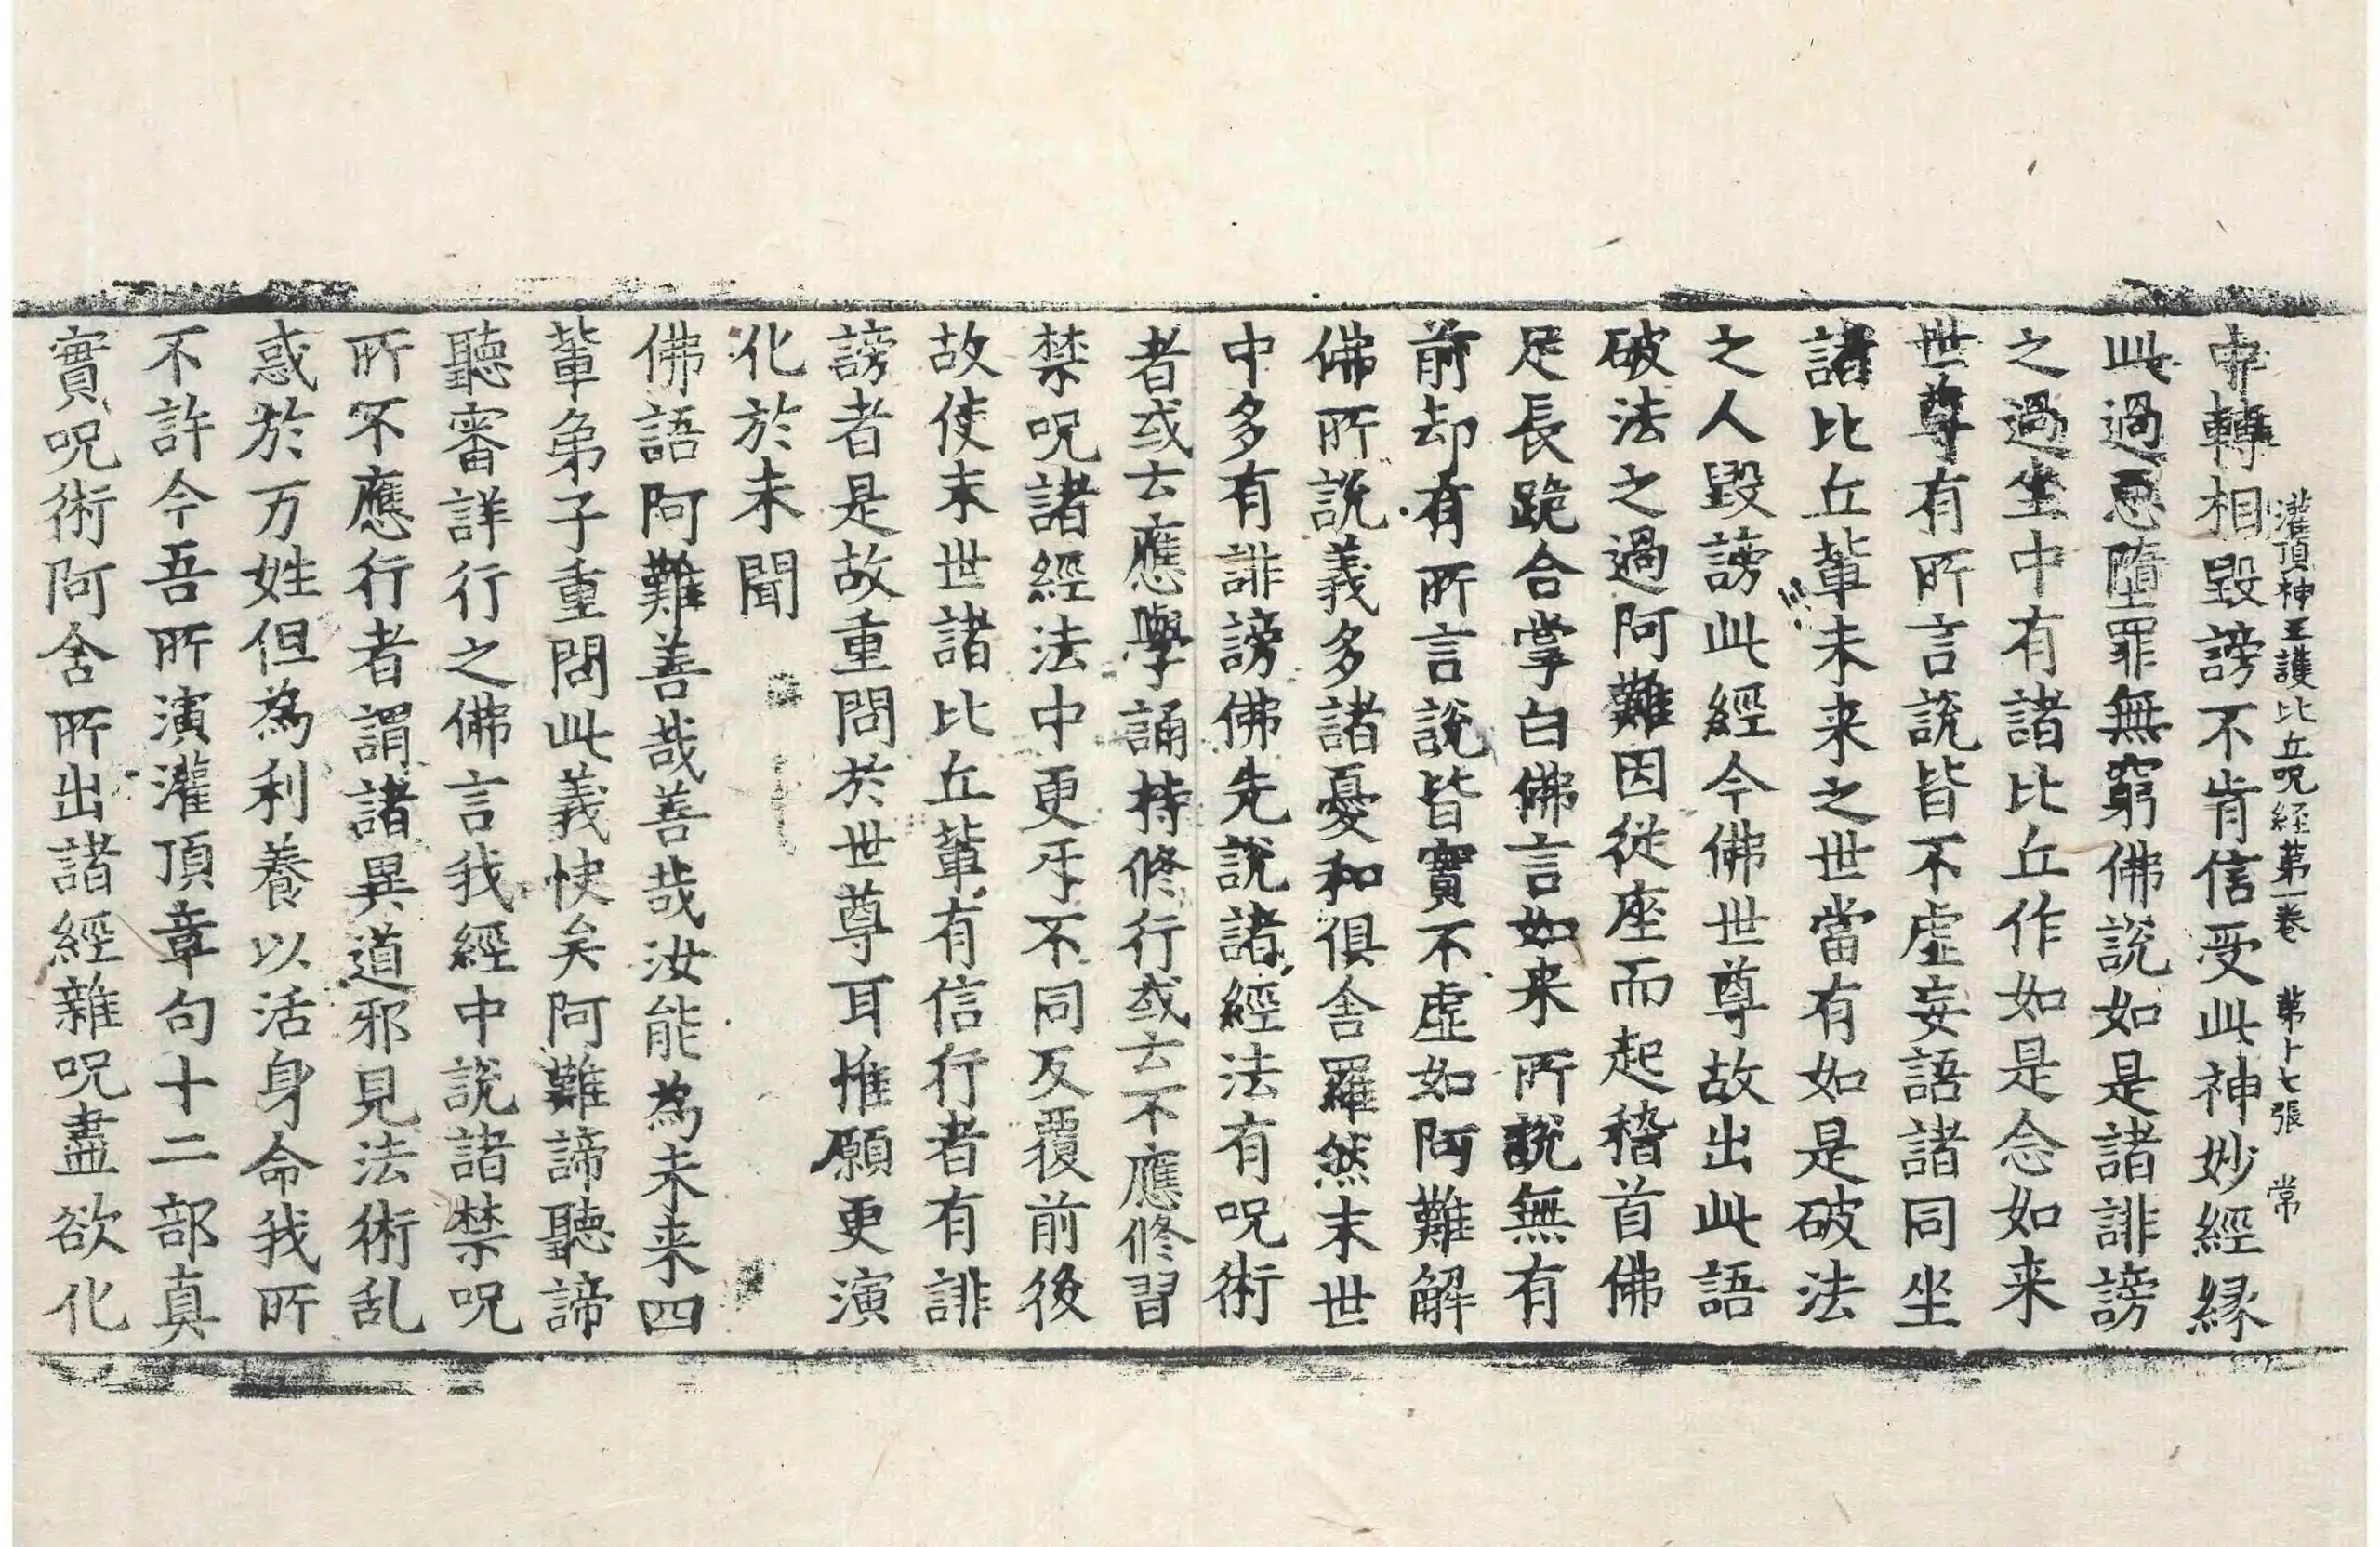 灌頂神王護比丘呪経苐一卷 苐十七張 常
中轉相毀謗不肯信受此神妙經縁
此過惡墮罪無窮佛說如是諸誹謗
之過坐中有諸比丘作如是念如来
世尊有所言說皆不虛妄語諸同坐
諸比丘輩未来之世當有如是破法
之人毀謗此經今佛世尊故出此語
破法之過阿難因從座而起稽首佛
足長跪合掌白佛言如来所說無有
前却有所言說皆實不虛如阿難解
佛所說義多諸憂和俱舍羅然末世
中多有誹謗佛先說諸經法有呪術
者或云應學誦持修行或云不應修習
禁呪諸經法中更㸦不同反覆前後
故使末世諸比丘輩有信行者有誹
謗者是故重問於世尊耳惟願更演
化於未聞
佛語阿難善哉善哉汝能為未来四
輩弟子重問此義快矣阿難諦聽諦
聽審詳行之佛言我經中說諸禁呪
所不應行者謂諸異道邪見法術乱
惑於万姓但為利養以活身命我所
不許今吾所演灌頂章句十二部真
實呪術阿含所出諸經雜呪盡欲化